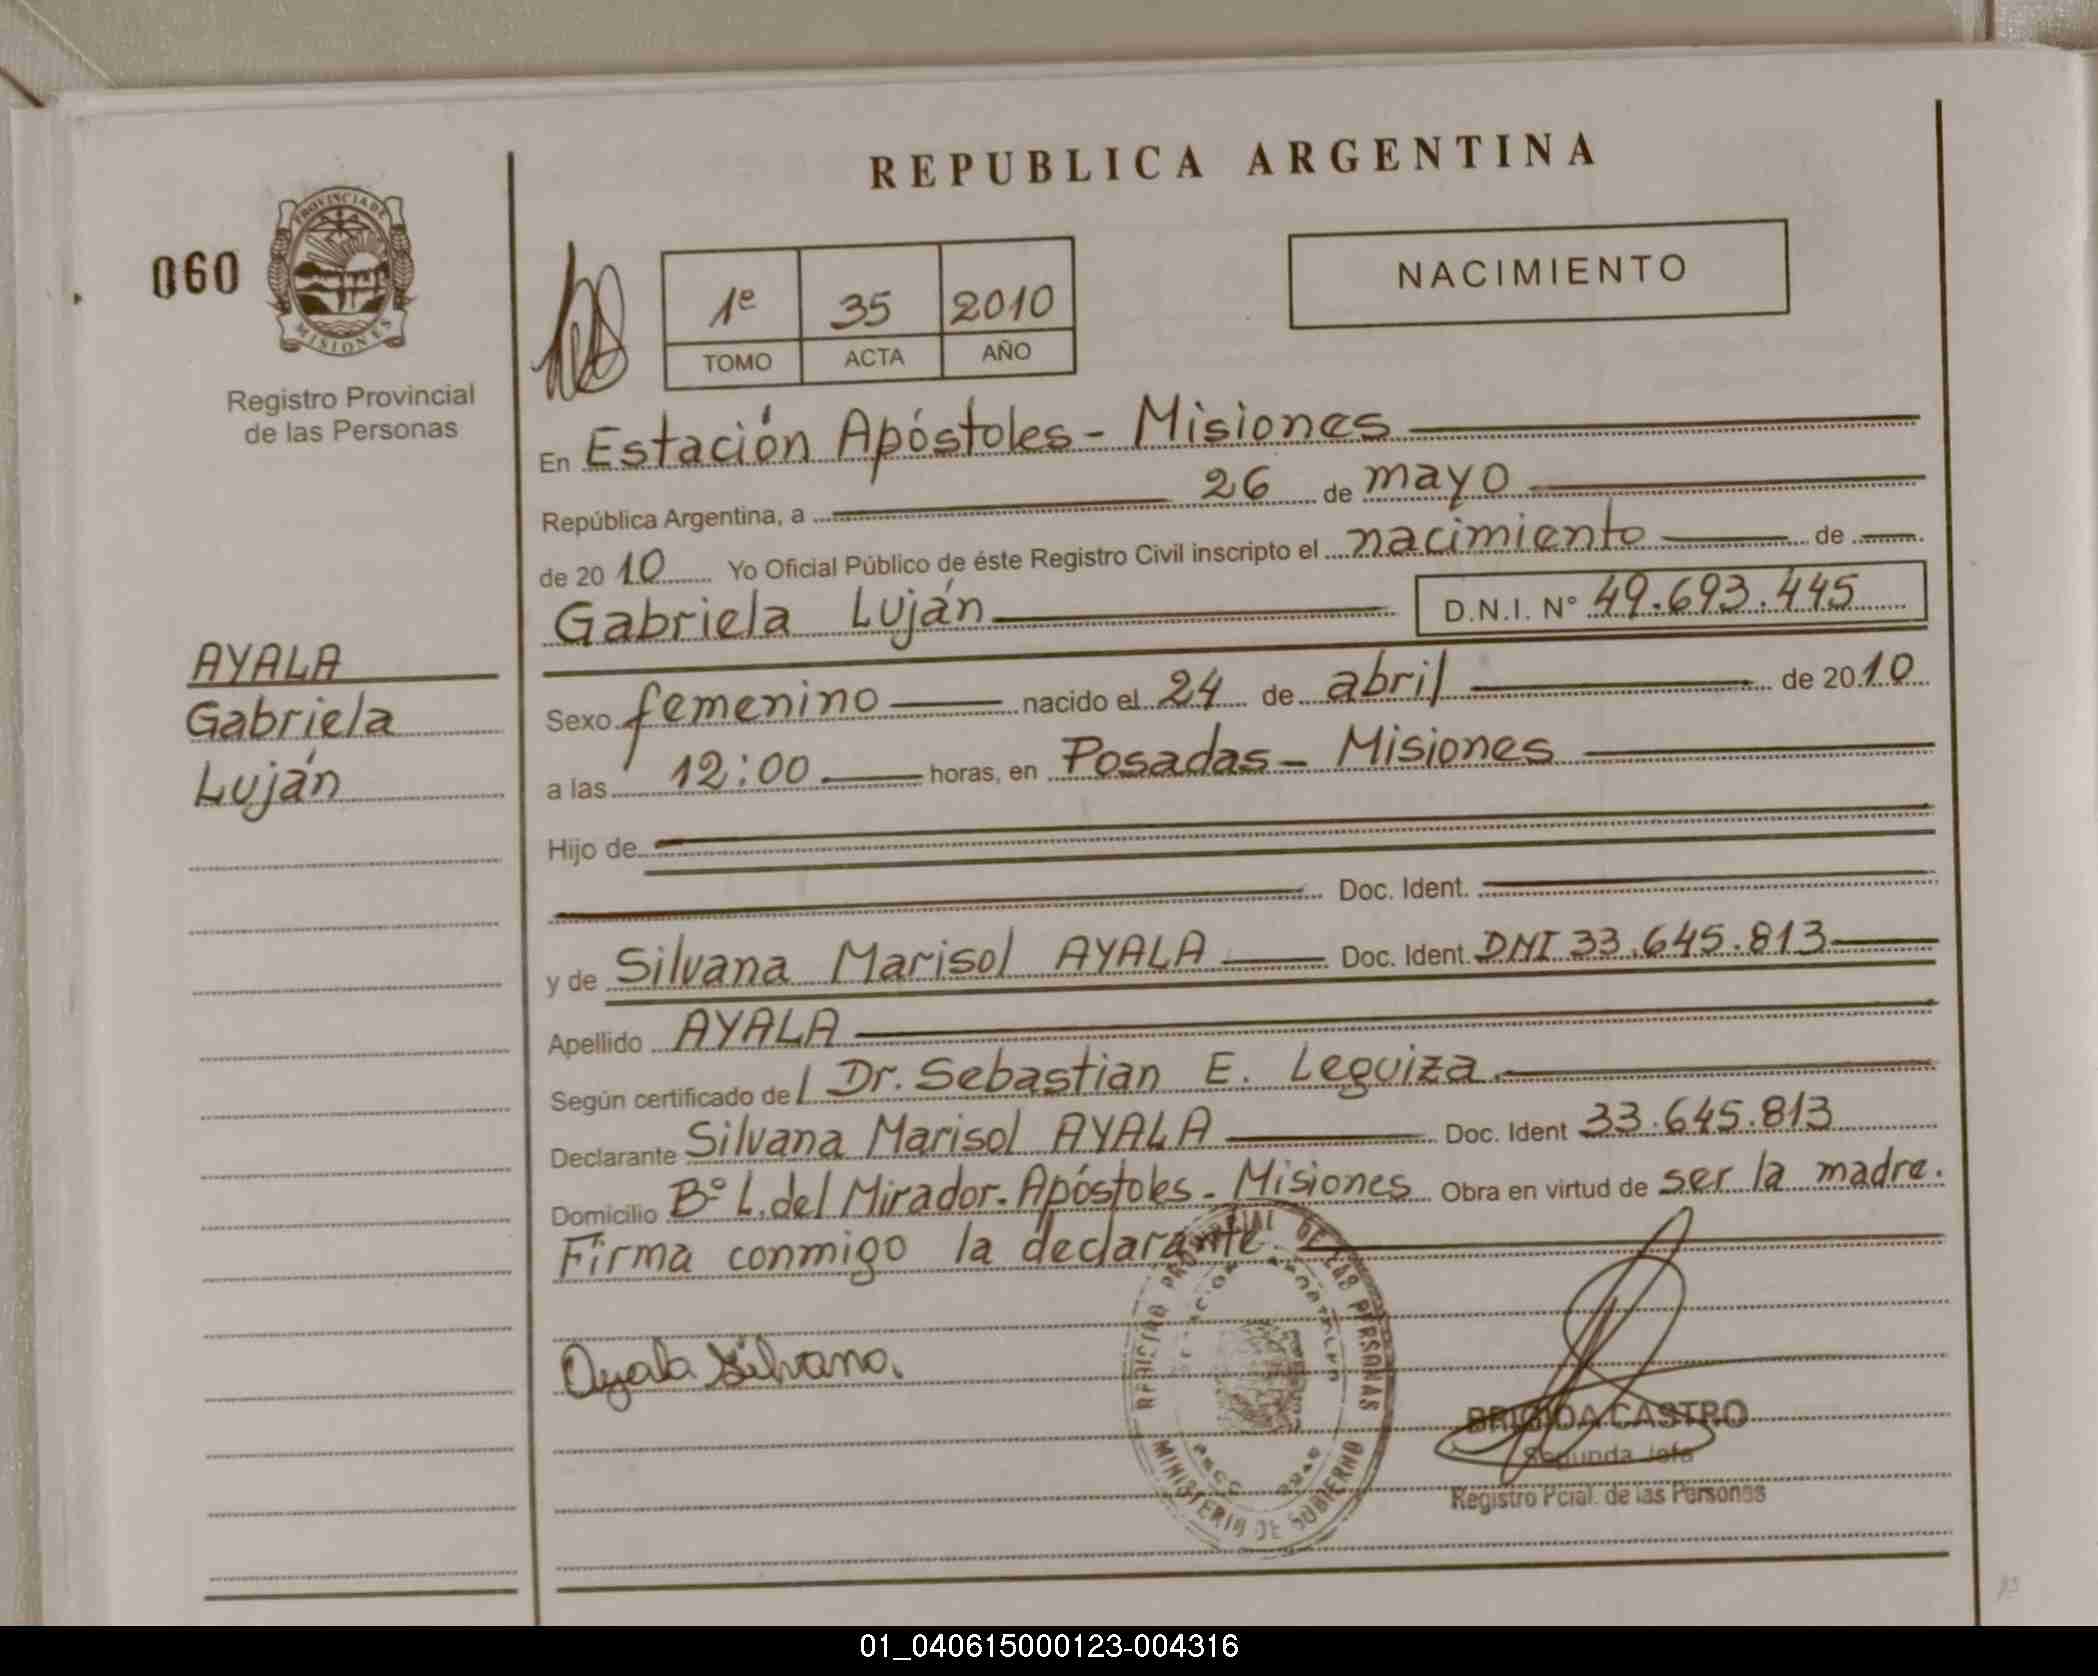 REPUBLICA ARGENTINA
060
PROVINCIA DE
MISIONES
Registro Provincial
de las Personas
1º 35 2010
TOMO ACTA AÑO
NACIMIENTO
En Estación Apóstoles - Misiones
República Argentina, a 26 de mayo
de 2010 Yo Oficial Público de éste Registro Civil inscripto el nacimiento de
Gabriela Luján D.N.I. N° 49.693.445
AYALA
Gabriela
Luján
Sexo femenino nacido el 24 de abril de 2010
a las 12:00 horas, en Posadas - Misiones
Hijo de
Doc. Ident.
y de Silvana Marisol AYALA Doc. Ident. DNI 33.645.813
Apellido AYALA
Según certificado del Dr. Sebastian E. Leguiza
Declarante Silvana Marisol AYALA Doc. Ident 33.645.813
Domicilio Bº L. del Mirador - Apóstoles - Misiones Obra en virtud de ser la madre.
Firma conmigo la declarante
Ayala Silvana.
DE LAS PERSONAS
MINISTERIO DE GOBIERNO
BRIGIDA CASTRO
Segunda Jefa
Registro Pcial. de las Personas
01_040615000123-004316